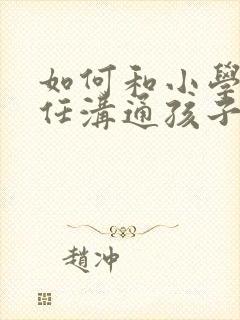 如何和小學
任溝通孩子
趙沖